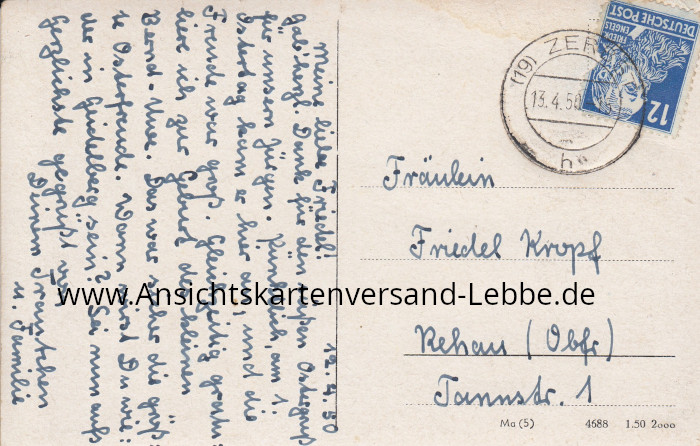 12.4.50
Meine liebe Friedel!
Hab herzl. Dank für den süßen Ostergruß
für unsern Jürgen. Pünktlich am 1.
Ostertag kam er hier an, und die
Freude war groß. Gleichzeitig gratu
liere ich zur Geburt des kleinen
Bernd-Uwe. Das war sicher die größ
te Osterfreude. Wann wirst Du wie:
der in Heidelberg sein? Sei nun aufs
Herzlichste gegrüßt von
Deinem Frauchen
u. Familie
DEUTSCHE POST
FRIEDR. ENGELS
12
(19) ZER
13.4.50
h
Fräulein
Friedel Kropf
www.Ansichtskartenversand-Lebbe.de
Rehau (Obfr)
Tannstr. 1
Ma (5) 4688 1.50 2000